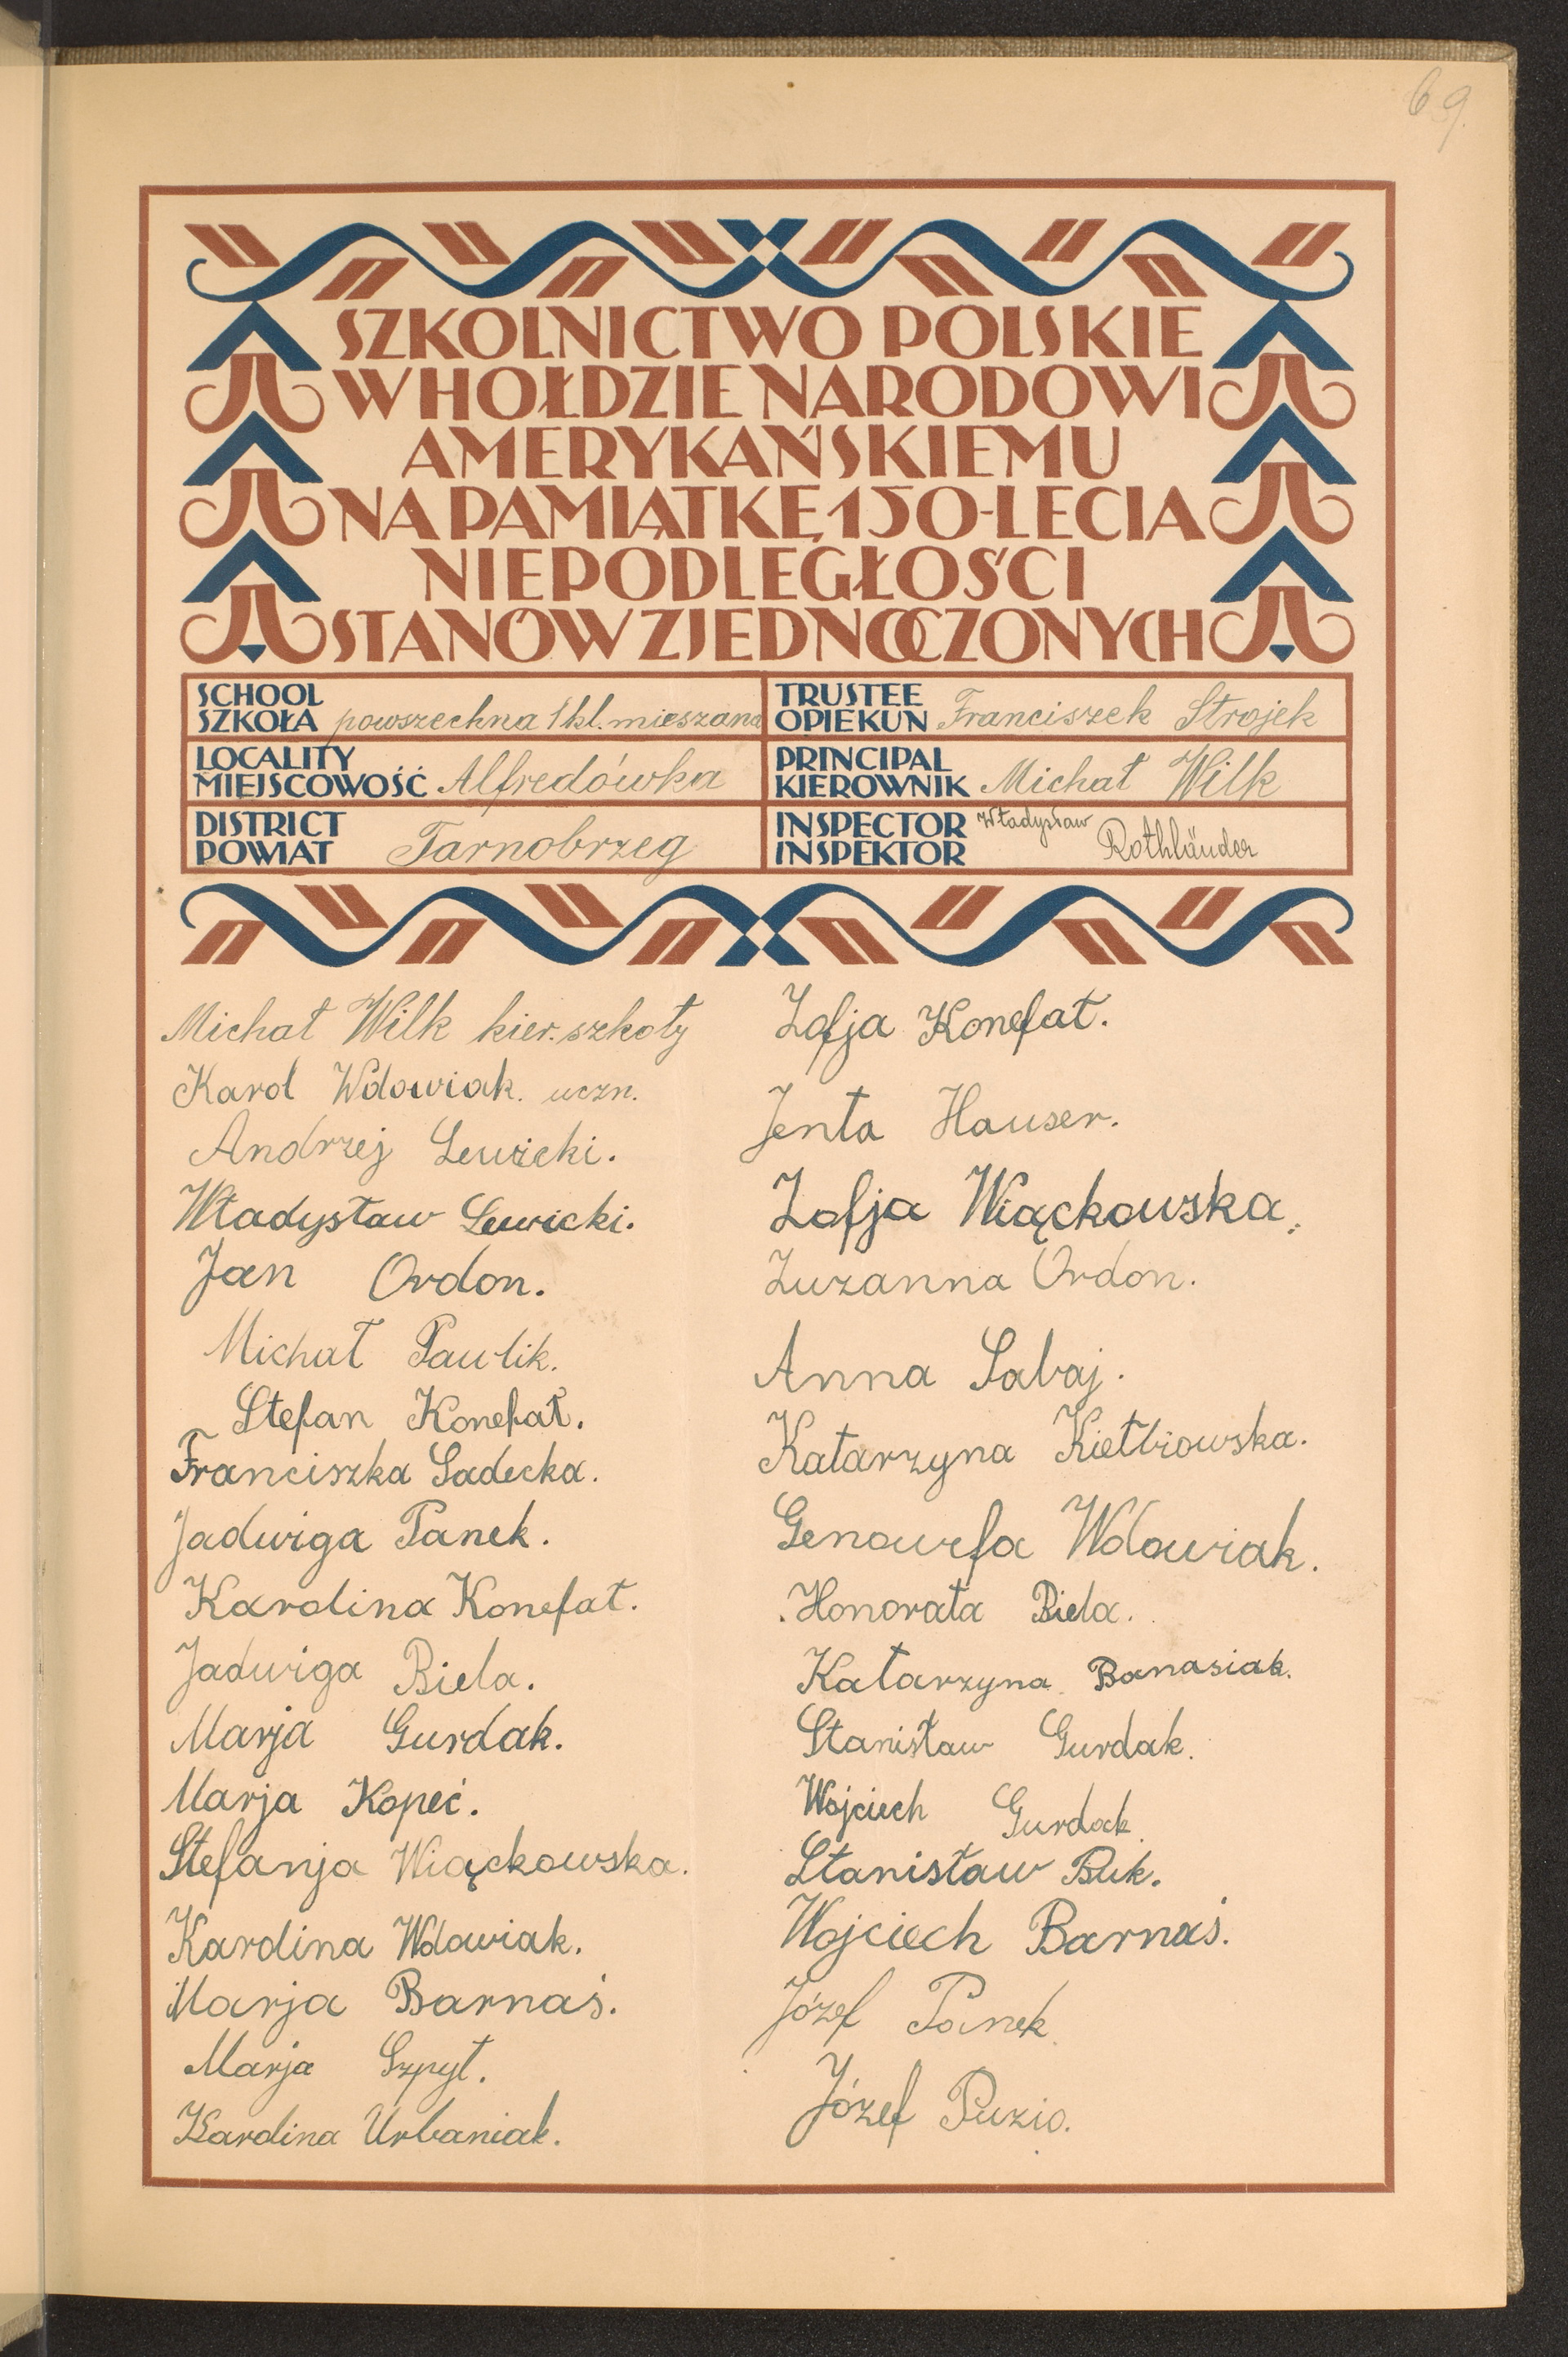 69.
SZKOLNICTWO POLSKIE
W HOŁDZIE NARODOWI
AMERYKAŃSKIEMU
NA PAMIĄTKĘ 150-LECIA
NIEPODLEGŁOŚCI
STANÓW ZJEDNOCZONYCH
SCHOOL
SZKOŁA powszechna 1 kl. mieszana
LOCALITY
MIEJSCOWOŚĆ Alfredówka
DISTRICT
POWIAT Tarnobrzeg
TRUSTEE
OPIEKUN Franciszek Strojek
PRINCIPAL
KIEROWNIK Michał Wilk
INSPECTOR Władysław
INSPEKTOR Rothländer
Michał Wilk kier. szkoły
Karol Wdowiak. uczn.
Andrzej Lewicki.
Władysław Lewicki.
Jan Ordon.
Michał Pawlik.
Stefan Konefał.
Franciszka Sadecka.
Jadwiga Panek.
Karolina Konefał.
Jadwiga Biela.
Marja Gurdak.
Marja Kopeć.
Stefanja Wiąckowska.
Karolina Wdowiak.
Marja Barnaś.
Marja Szpyt.
Karolina Urbaniak.
Zofja Konefał.
Jenta Hauser.
Zofja Wiąckowska.
Zuzanna Ordon.
Anna Sabaj.
Katarzyna Kiełbiowska.
Genowefa Wdowiak.
Honorata Biela.
Katarzyna Banasiak.
Stanisław Gurdak.
Wojciech Gurdak.
Stanisław Buk.
Wojciech Barnaś.
Józef Panek.
Józef Puzio.